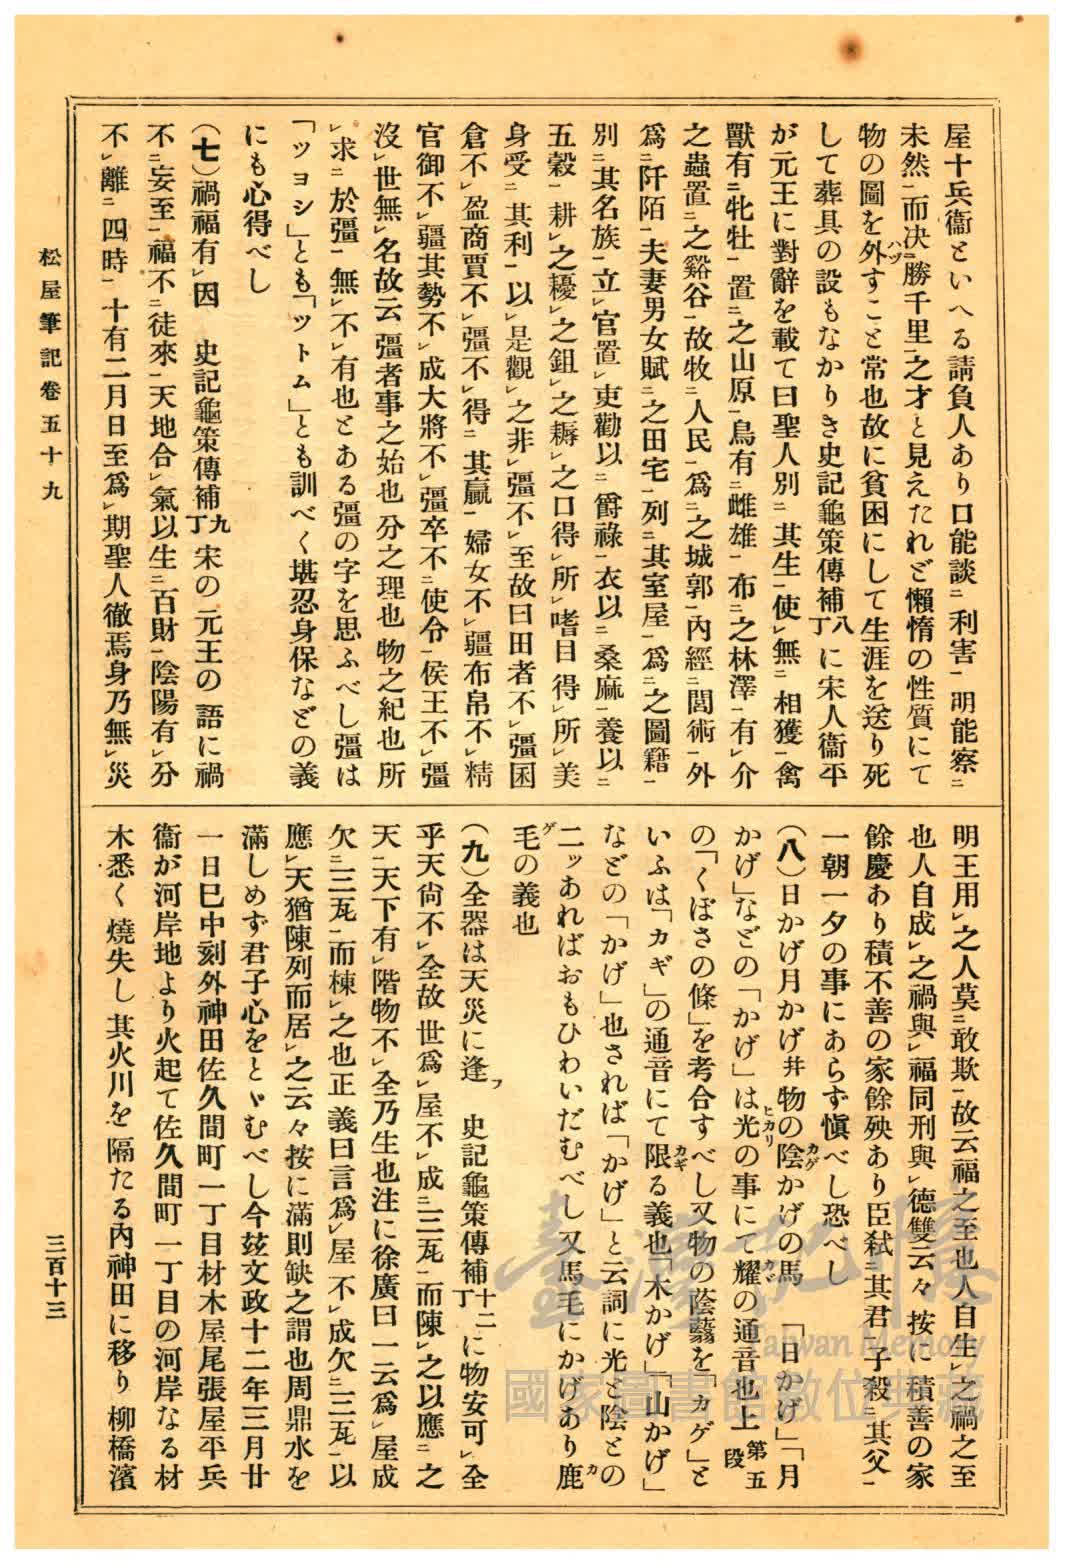 屋十兵衞といへる請負人あり口能談㆓利害㆒明能察㆓
未然㆒而决㆓勝千里㆒之才と見えたれど懶惰の性質にて
物の圖を外すこと常也故に貧困にして生涯を送り死
ハヅ
して葬具の設もなかりき史記龜策傳補八丁に宋人衞平
が元王に對辭を載て曰聖人別㆓其生㆒使㆑無㆓相獲㆒禽
獸有㆓牝牡㆒置㆓之山原㆒鳥有㆓雌雄㆒布㆓之林澤㆒有㆑介
之蟲置㆓之谿谷㆒故牧㆓人民㆒爲㆓之城郭㆒內經㆓閭術㆒外
爲㆓阡陌㆒夫妻男女賦㆓之田宅㆒列㆓其室屋㆒爲㆓之圖籍㆒
別㆓其名族㆒立㆑官置㆑吏勸以㆓爵祿㆒衣以㆓桑麻㆒養以㆓
五穀㆒耕㆑之耰㆑之鉏㆑之耨㆑之口得㆑所㆑嗜目得㆑所㆑美
身受㆓其利㆒以㆑是觀㆑之非㆑彊不㆑至故曰田者不㆑彊囷
倉不㆑盈商賈不㆑彊不㆑得㆓其贏㆒婦女不㆑彊布帛不㆑精
官御不㆑彊其勢不㆑成大將不㆑彊卒不㆓使令㆒侯王不㆑彊
沒㆑世無㆑名故云彊者事之始也分之理也物之紀也所
㆑求㆓於彊㆒無㆑不㆑有也とある彊の字を思ふべし彊は
「ツヨシ」とも「ツトム」とも訓べく堪忍身保などの義
にも心得べし
(七)禍福有㆑因　史記龜策傳補九丁宋の元王の語に禍
不㆓妄至㆒福不㆓徒來㆒天地合㆑氣以生㆓百財㆒陰陽有㆑分
不㆑離㆓四時㆒十有二月日至爲㆑期聖人徹焉身乃無㆑災
明王用㆑之人莫㆓敢欺㆒故云福之至也人自生㆑之禍之至
也人自成㆑之禍與㆑福同刑與㆑德雙云々按に積善の家
餘慶あり積不善の家餘殃あり臣弑㆓其君㆒子殺㆓其父㆒
一朝一夕の事にあらず愼べし恐べし
(八)日かげ月かげ井物の陰かげの馬　「日かげ」「月
カゲ
かげ」などの「かげ」は光の事にて耀の通音也上第五段
ヒカリ
の「くぼさの條」を考合すべし又物の蔭蘙を「カゲ」と
いふは「カギ」の通音にて限る義也「木かげ」「山かげ」
カギ
などの「かげ」也されば「かげ」と云詞に光と陰との
二ッあればおもひわいだむべし又馬毛にかげあり鹿
カ
毛の義也
ゲ
(九)全器は天災に逢フ　史記龜策傳補十二丁に物安可㆑全
乎天尙不㆑全故世爲㆑屋不㆑成㆓三瓦㆒而陳㆑之以應㆓之
天㆒天下有㆑階物不㆑全乃生也注に徐廣曰一云爲㆑屋成
欠㆓三瓦㆒而棟㆑之也正義曰言爲㆑屋不㆑成欠㆓三瓦㆒以
應㆑天猶陳列而居㆑之云々按に滿則缺之謂也周鼎水を
滿しめず君子心をとゞむべし今玆文政十二年三月廿
一日巳中刻外神田佐久間町一丁目材木屋尾張屋平兵
衞が河岸地より火起て佐久間町一丁目の河岸なる材
木悉く燒失し其火川を隔たる內神田に移り柳橋濱
松屋筆記卷五十九
三百十三
Taiwan Memory
國家圖書館數位典藏